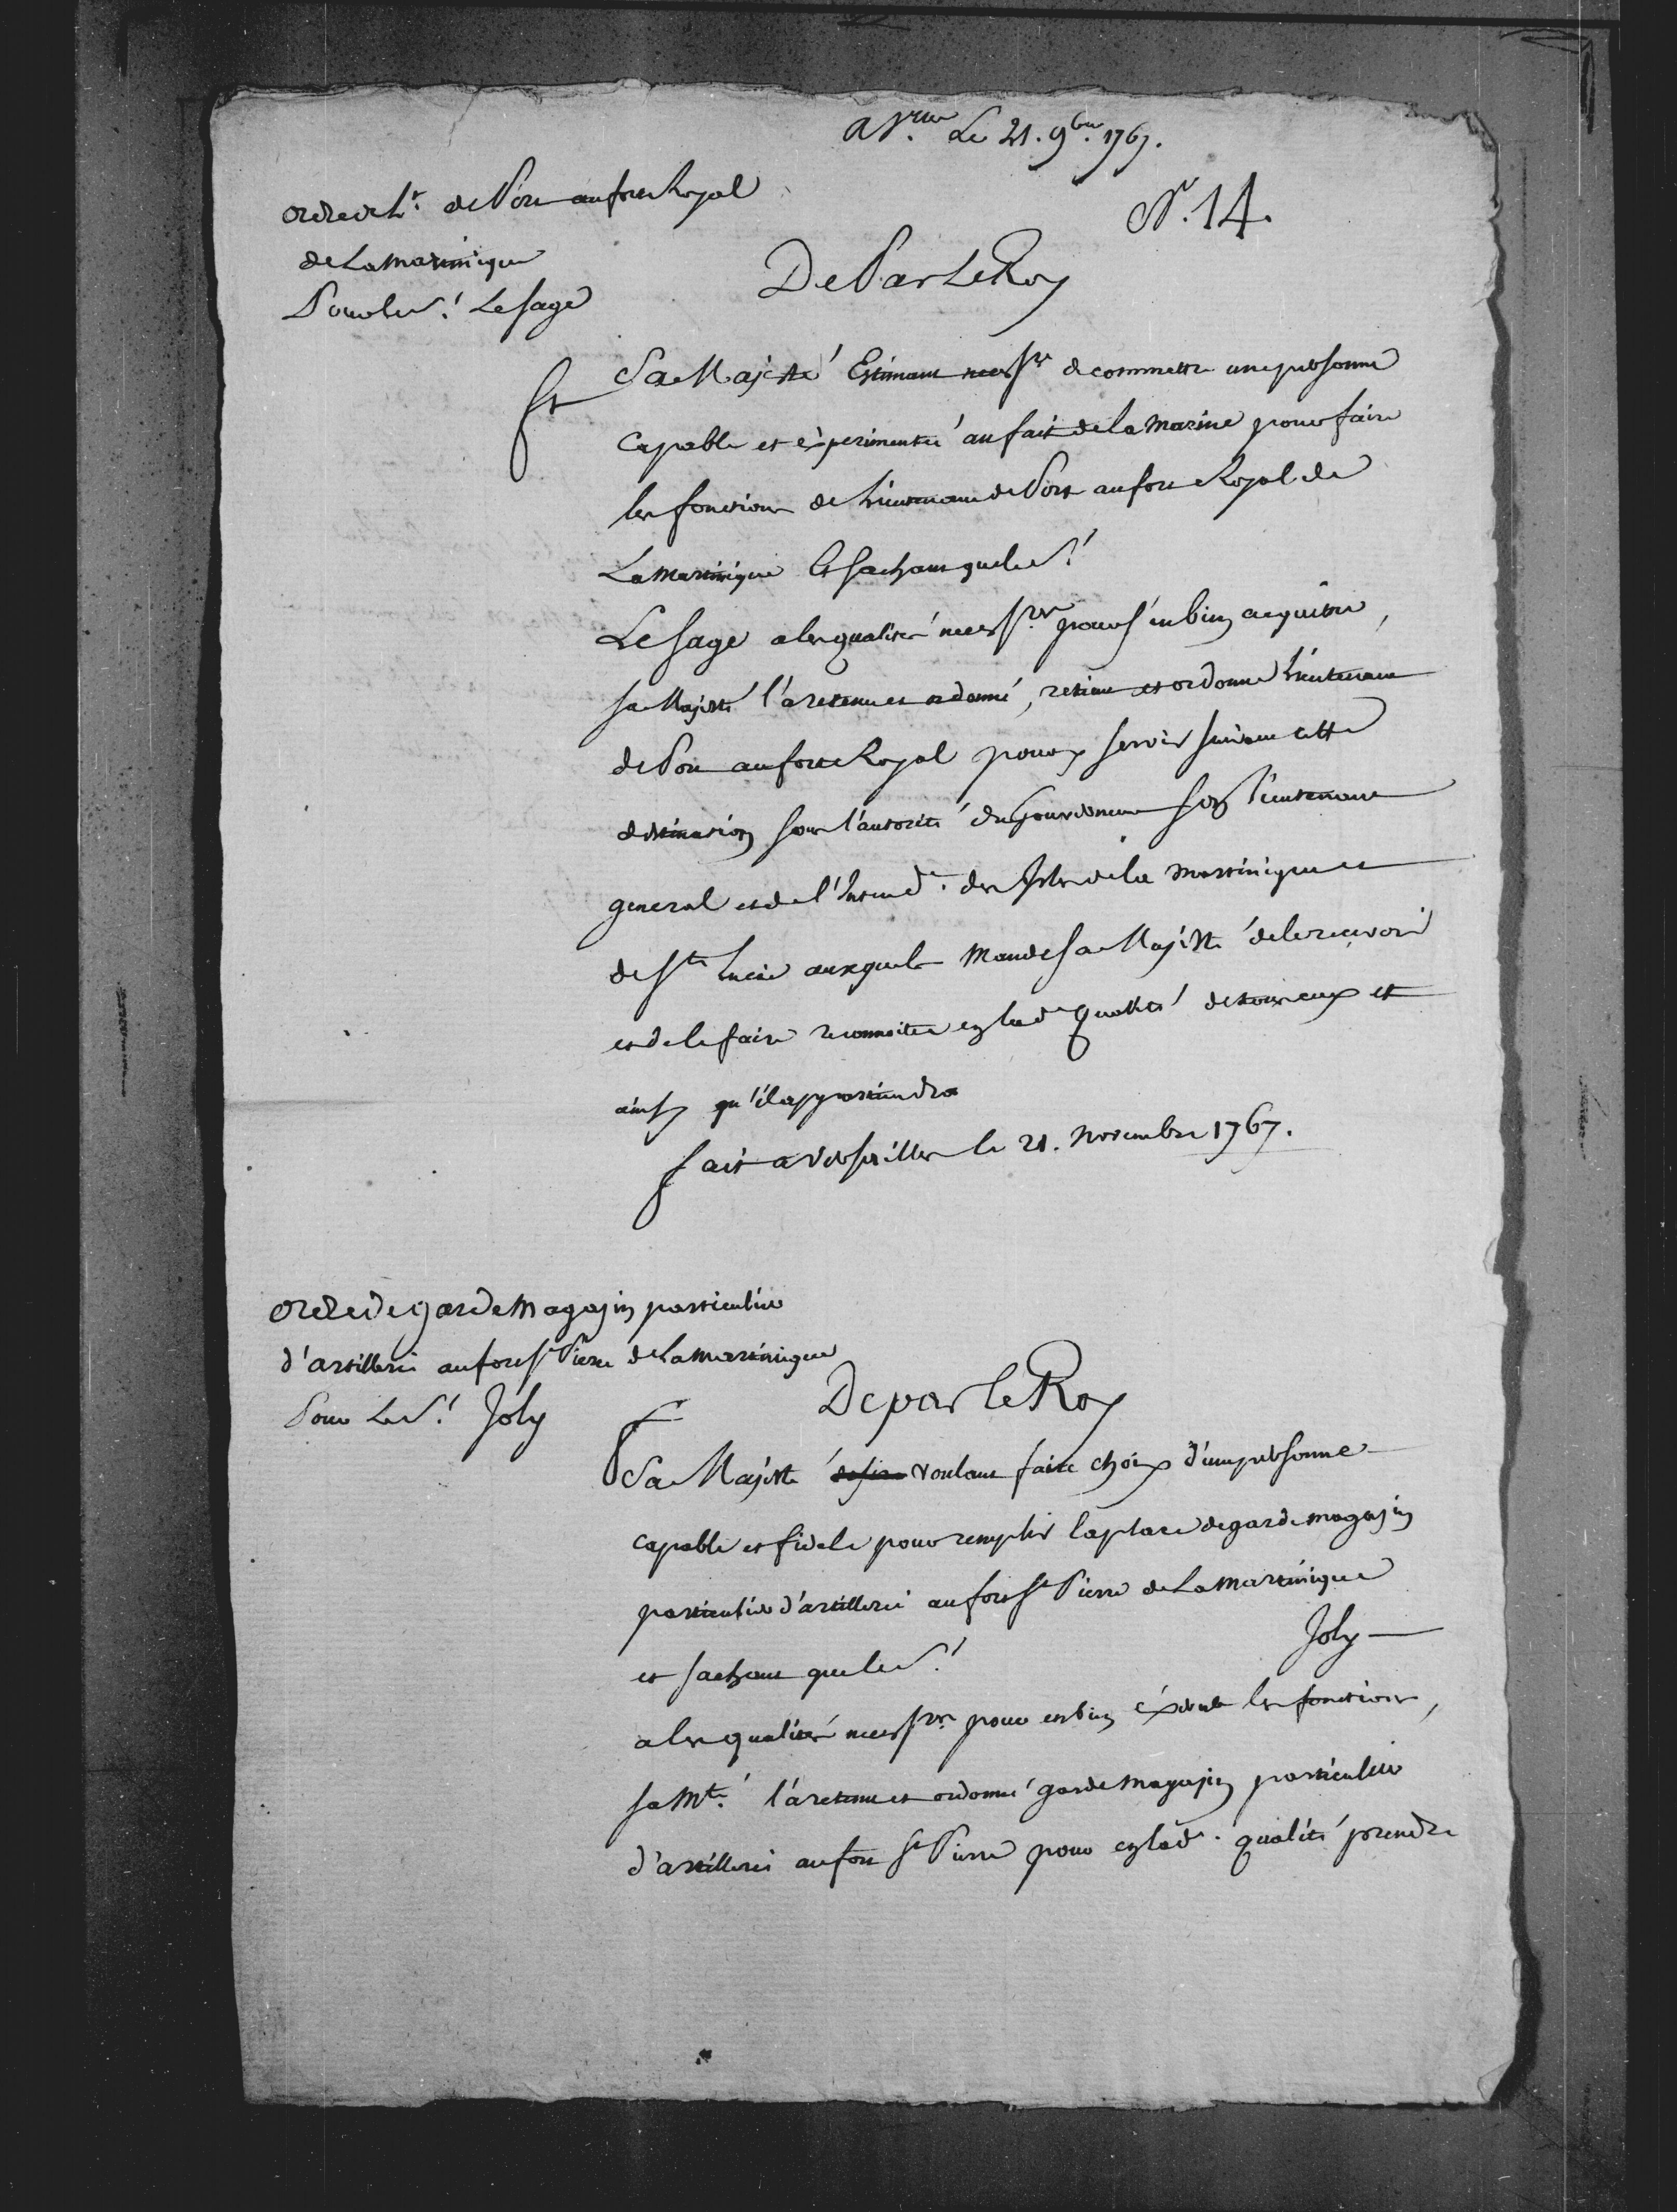 a V.lles Le 21. 9bre 1767.
N.° 14.
ordre de L.t de Port au fort Royal
de La martinique
Pour le S.r Le Sage
De Par Le Roy
Sa Majesté Estimant necess.re de commettre une personne
capable et éxperimentée au fait de la marine pour faire
les fonctions de Lieutenant de Port au fort Royal de
La martinique Et sachant que le S.r
Le Sage a les qualités necess.res pour s'en bien acquitter,
sa Majesté l'a retenu et ordonné, retient et ordonne Lieutenant
de Port au fort Royal pour y servir suivant cette
destination sous l'autorité du Gouverneur son Lieutenant
general et de l'Intend.t des Isles de la martinique et
de S.te Lucie auxquels mande sa Majesté de le recevoir
et de le faire reconnoitre en lad.e qualité de tous ceux et
ainsy qu'il appartiendra
fait a Versailles le 21. novembre 1767.
ordre de garde magasin particulier
d'artillerie au fort S.t Pierre de La martinique
Pour Le S.r Joly
De par le Roy
Sa Majesté voulant faire choix d'une personne
capable et fidele pour remplir la place de garde magasin
particulier d'artillerie au fort S.t Pierre de La martinique
et sachant que le S.r Joly
a les qualités necess.res pour en bien éxercer les fonctions,
sa M.té l'a retenu et ordonné garde magasin particulier
d'artillerie au fort S.t Pierre pour en lad.e qualité prendre